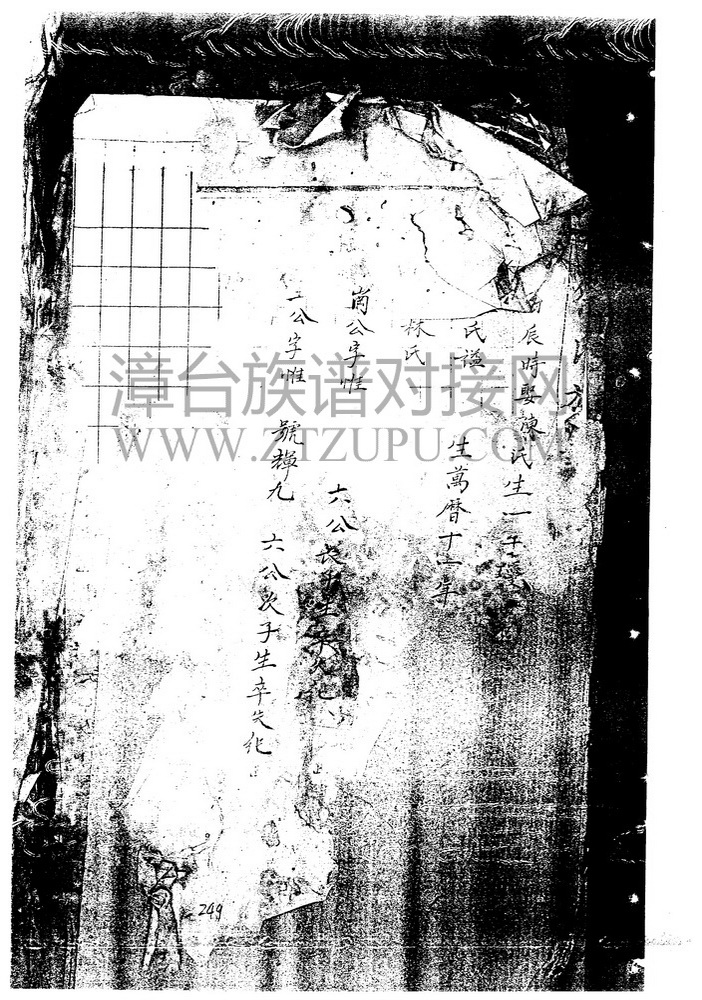 辰時娶陳氏生一子
氏謚
生萬曆十一年
林氏
崗公字惟
六公長子生卒失記
二公字惟
號輝九
六公次子生卒失化
漳台族谱对接网
WWW.ZTZUPU.COM
249